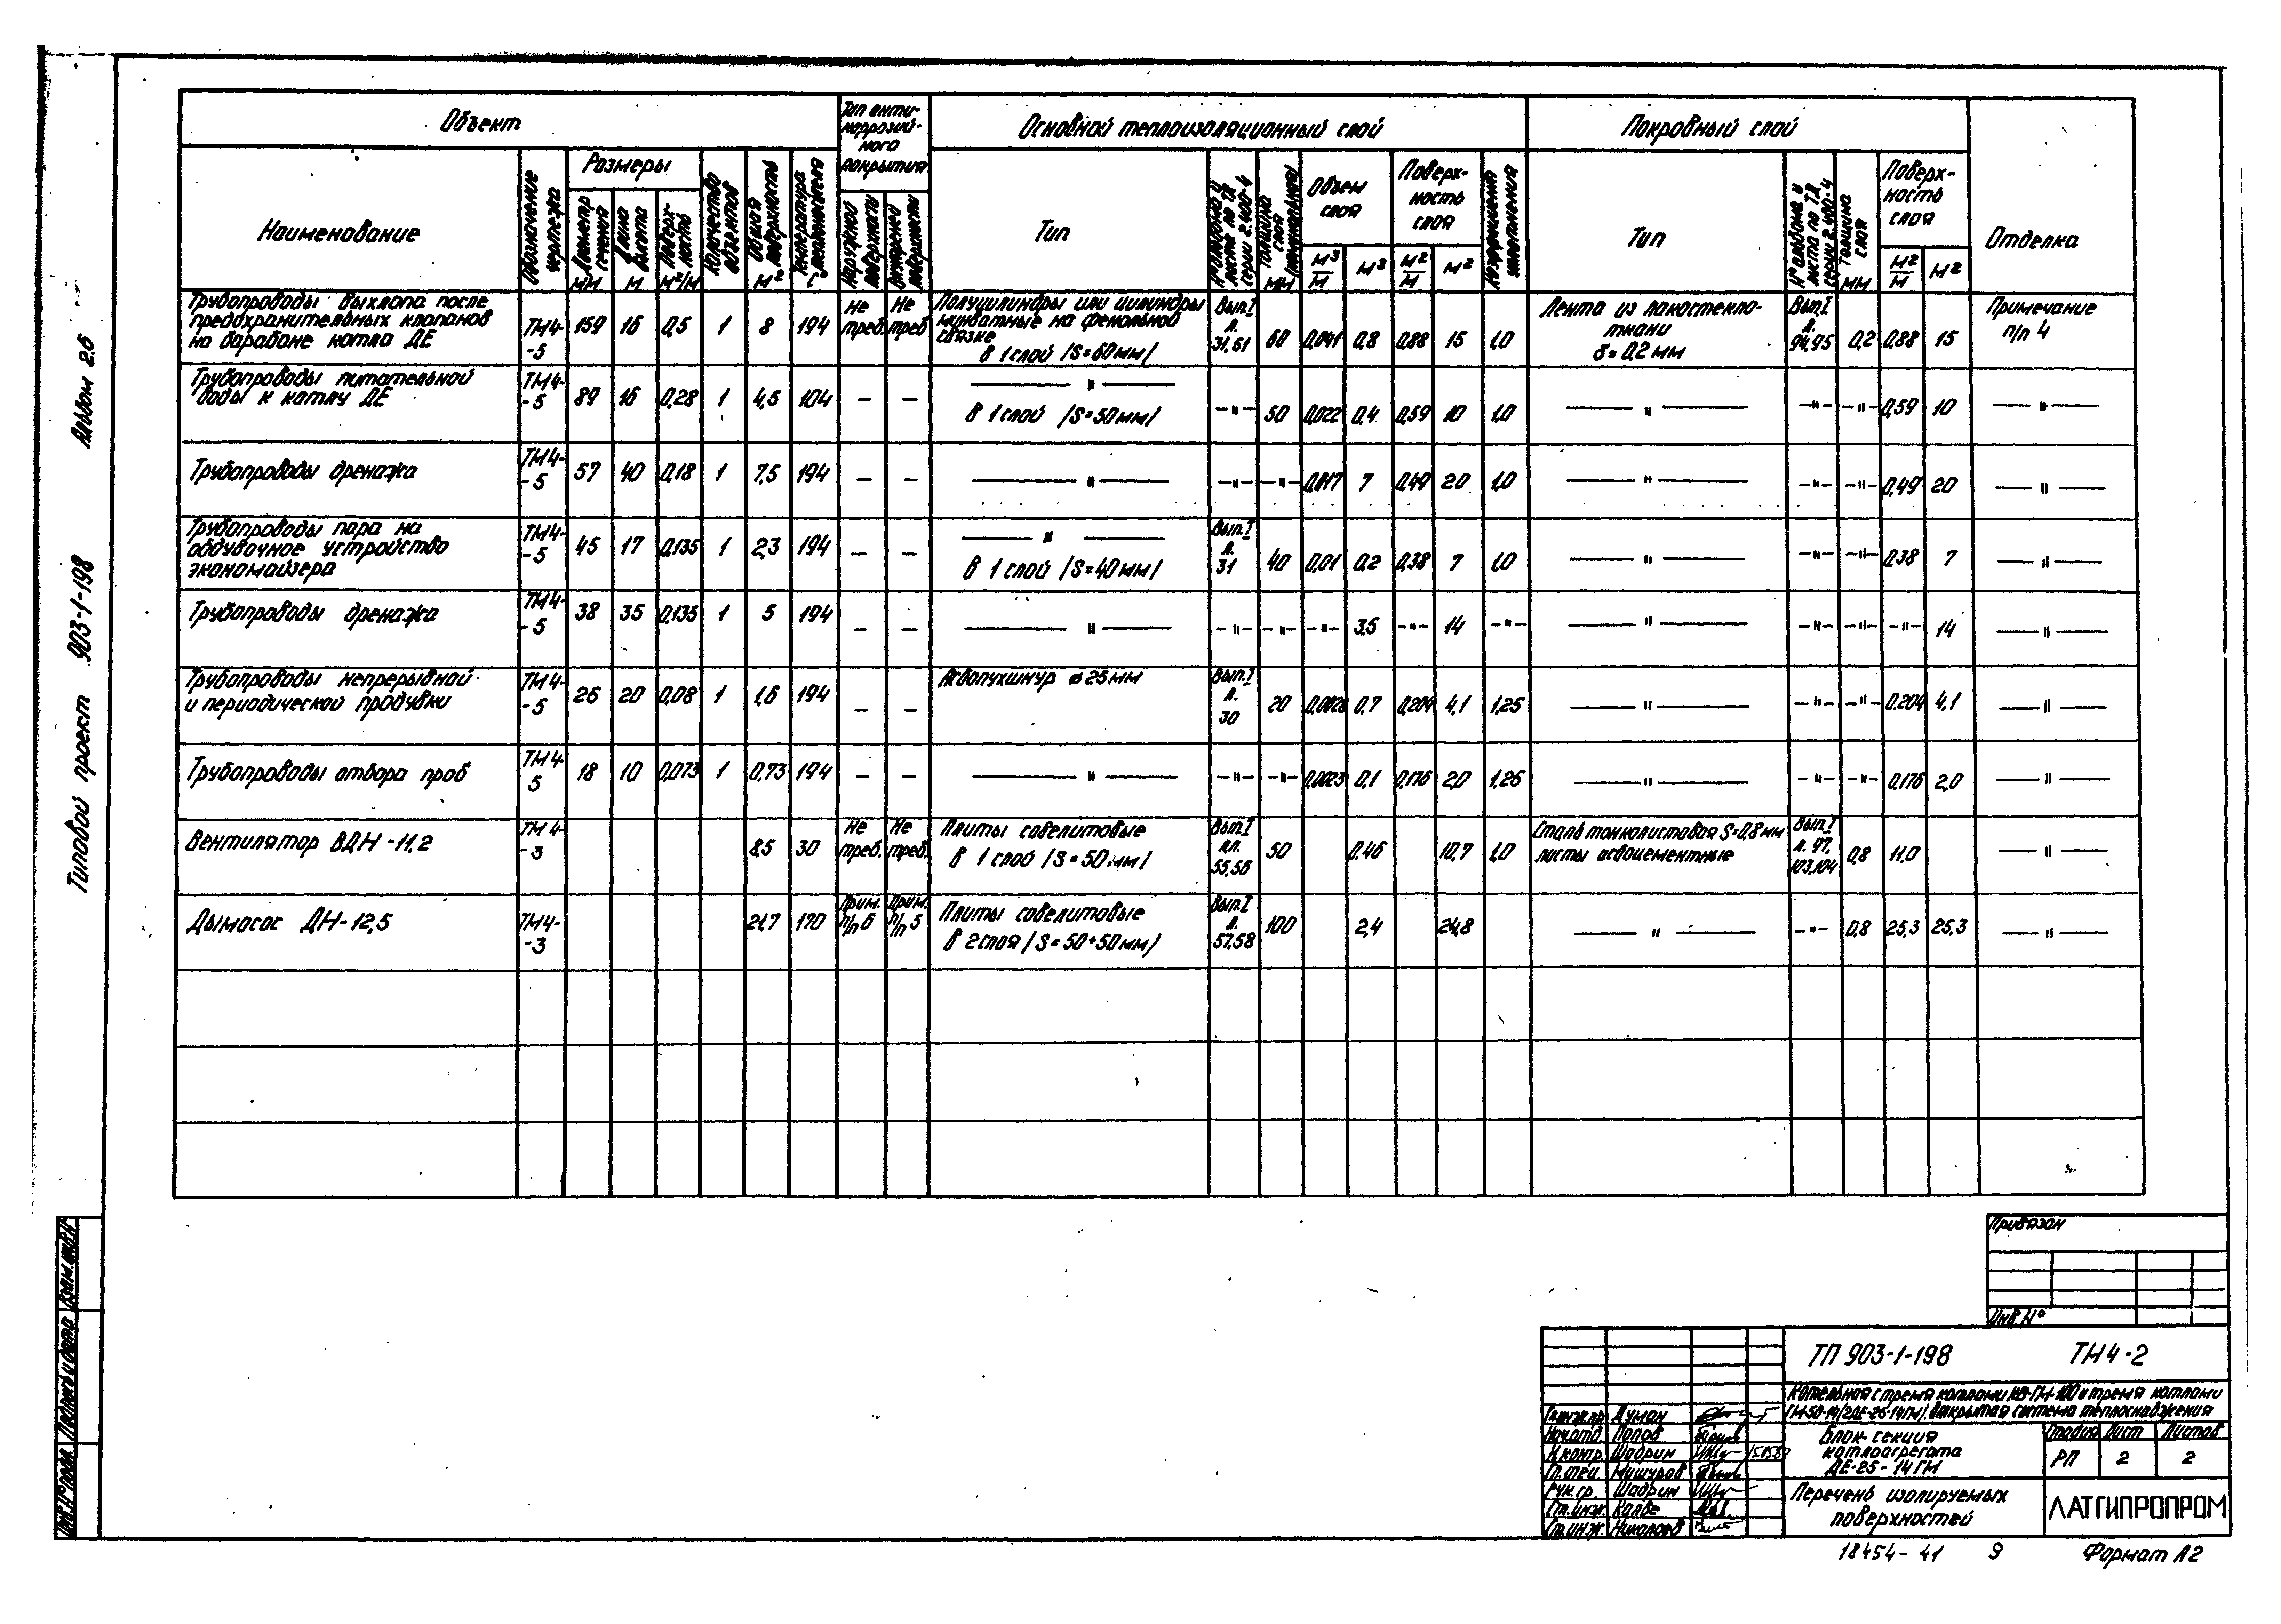 Альбом 2.6
Типовой проект 903-1-198
Объект
Тип анти-
коррозий-
ного
покрытия
Основной теплоизоляционный слой
Покровный слой
Отделка
Наименование
Обозначение чертежа
Размеры
Диаметр сечения
мм
Длина высота
м
Поверх-
ность
м²/м
Количество объектов
Общая поверхность
м²
Температура теплоносителя
°С
Наружной поверхности
Внутренней поверхности
Тип
N° альбома и листа по ТД серии 2.400-4
Толщина слоя
мм
Объем слоя
м³/м
м³
Поверх-
ность
слоя
м²/м
м²
Коэффициент уплотнения
Тип
N° альбома и листа по ТД серии 2.400-4
Толщина слоя
мм
Поверх-
ность
слоя
м²/м
м²
Трубопроводы выхлопа после
предохранительных клапанов
на барабане котла ДЕ
ТМ4-
-5
159 16 0,5 1 8 194 Не треб. Не треб
Полуцилиндры или цилиндры
минватные на фенольной
связке
в 1 слой /S=60мм/
Вып.I
л.
31,61
60 0,041 0,8 0,88 15 1,0
Лента из лакостекло-
ткани
δ=0,2 мм
Вып.I
л.
94,95
0,2 0,88 15
Примечание
п/п 4
Трубопроводы питательной
воды к котлу ДЕ
ТМ4-
-5
89 16 0,28 1 4,5 104 — —
— " —
в 1 слой /S=50мм/
-"- 50 0,022 0,4 0,59 10 1,0 — " — -"- -"- 0,59 10 — " —
Трубопроводы дренажа
ТМ4-
-5
57 40 0,18 1 7,5 194 — — — " — -"- -"- 0,017 7 0,49 20 1,0 — " — -"- -"- 0,49 20 — " —
Трубопроводы пара на
обдувочное устройство
экономайзера
ТМ4-
-5
45 17 0,135 1 2,3 194 — —
— " —
в 1 слой /S=40мм/
Вып.I
л.
31
40 0,01 0,2 0,38 7 1,0 — " — -"- -"- 0,38 7 — " —
Трубопроводы дренажа
ТМ4-
-5
38 35 0,135 1 5 194 — — — " — -"- -"- -"- 3,5 -"- 14 -"- — " — -"- -"- -"- 14 — " —
Трубопроводы непрерывной
и периодической продувки
ТМ4-
-5
25 20 0,08 1 1,6 194 — —
Асбопухшнур ⌀25мм
Вып.I
л.
30
20 0,0028 0,7 0,204 4,1 1,25 — " — -"- -"- 0.204 4,1 — " —
Трубопроводы отбора проб
ТМ4-
5
18 10 0,073 1 0,73 194 — — — " — -"- -"- 0,0023 0,1 0,176 2,0 1,25 — " — -"- -"- 0,176 2,0 — " —
Вентилятор ВДН-11,2
ТМ4-
-3
8,5 30 Не треб. Не треб.
Плиты совелитовые
в 1 слой /S=50мм/
Вып.I
лл.
55,56
50 0,46 10,7 1,0
Сталь тонколистовая S=0,8мм
листы асбоцементные
Вып.I
л.97,
103,104
0,8 11,0 — " —
Дымосос ДН-12,5
ТМ4-
-3
21,7 170 Прим. п/п 6 Прим. п/п 5
Плиты совелитовые
в 2слоя /S=50+50мм/
Вып.I
л.
57,58
100 2,4 24,8 — " — -"- 0,8 25,3 25,3 — " —
Привязан
Инв.N°
ТП 903-1-198 ТМ4-2
Котельная с тремя котлами КВ-ГМ-100 и тремя котлами
ГМ-50-14/2ДЕ-25-14ГМ/. Открытая система теплоснабжения
Гл.инж.пр. Думан
Нач.отд. Попов
Н.контр. Шадрин
Гл.спец. Мишуров
Рук.гр. Шадрин
Ст.инж. Калве
Ст.инж. Николаев
Блок-секция
котлоагрегата
ДЕ-25-14ГМ
Стадия Лист Листов
РП 2 2
Перечень изолируемых
поверхностей
ЛАТГИПРОПРОМ
18454-41 9 Формат А2
Взам.инв.N°
Подпись и дата
Инв.N° подл.